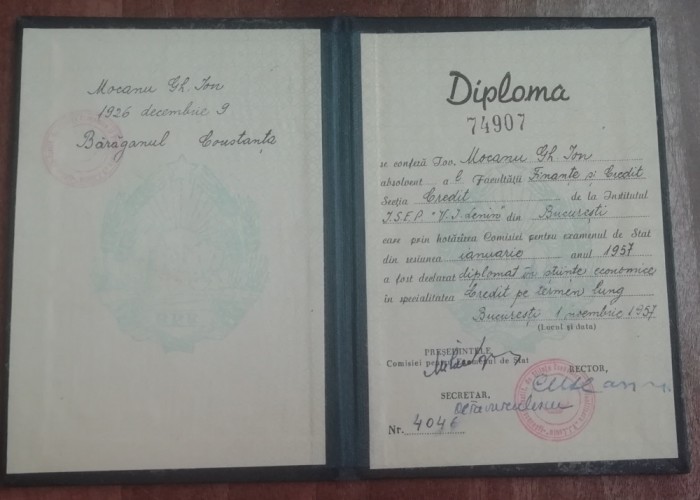 Mocanu Gh. Ion
1926 decembrie 9
Bărăganul Constanța
Diploma
74907
se conferă Tov. Mocanu Gh. Ion
absolvent a l Facultății Finanțe și Credit
Secția Credit de la Institutul
I.S.E.P. "V. I. Lenin" din București
care prin hotărîrea Comisiei pentru examenul de Stat
din sesiunea ianuarie anul 1957
a fost declarat diplomat în științe economice
în specialitatea Credit pe termen lung
București 1 noembrie 1957
(Locul și data)
PREȘEDINTELE
Comisiei pentru Examenul de Stat
RECTOR,
SECRETAR,
Nr. 4046